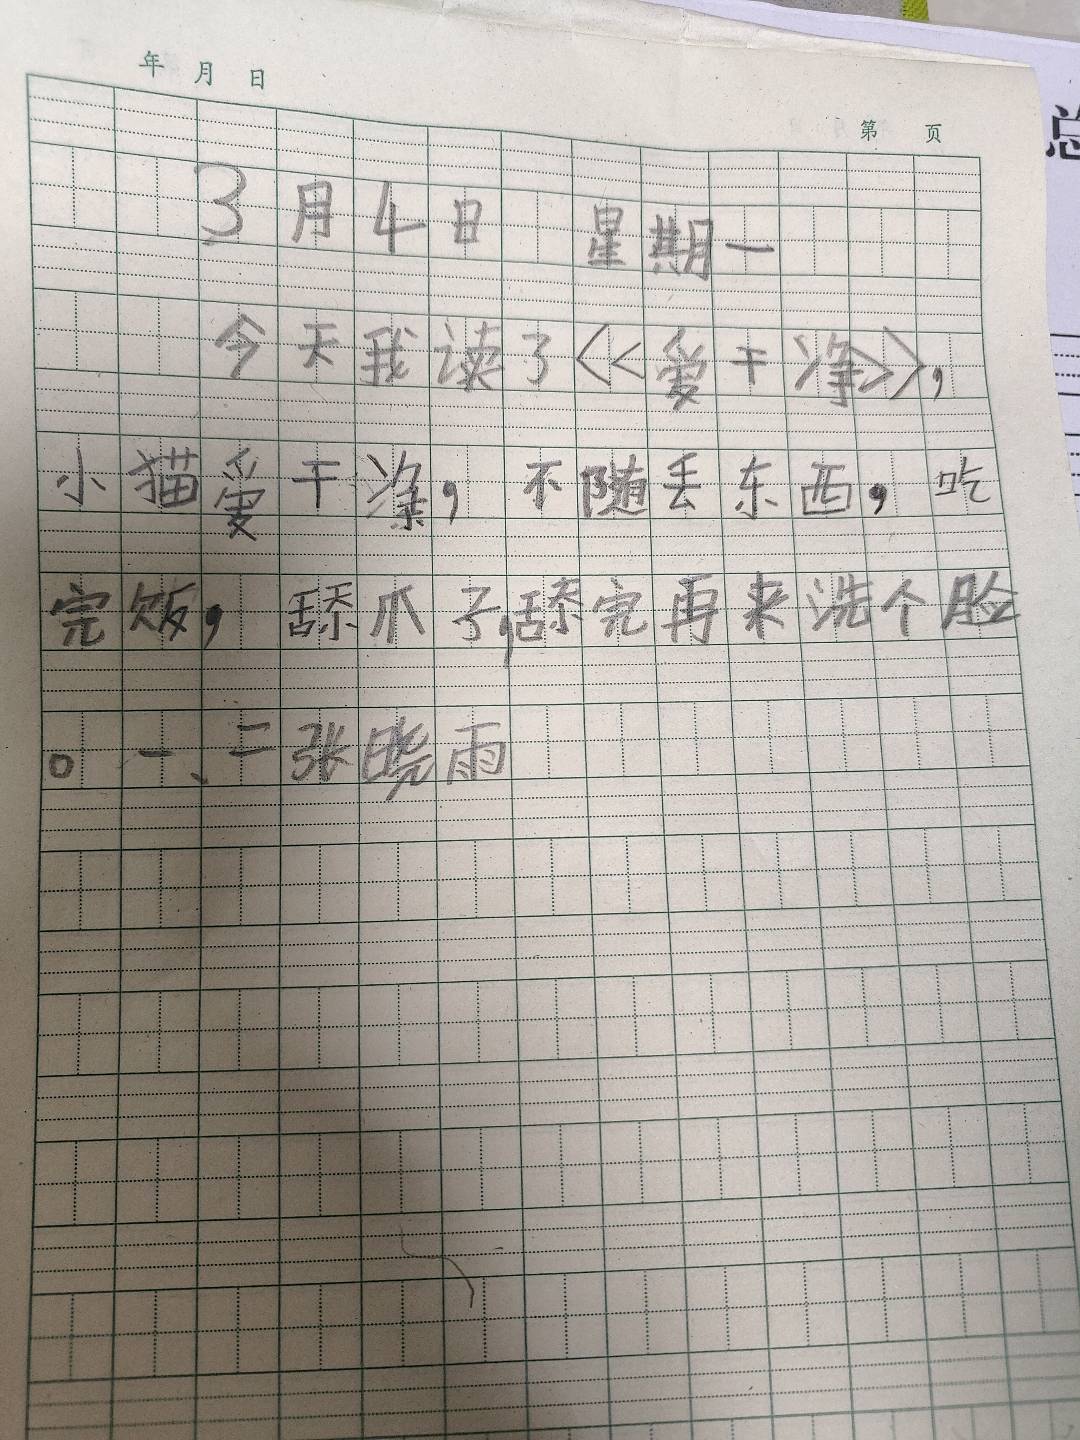 年 月 日
第 页
总
3月4日 星期一
今天我读了<<爱干净>>,
小猫爱干净, 不随丢东西, 吃
完饭, 舔爪子,舔完再来洗个脸
。一、二张晓雨